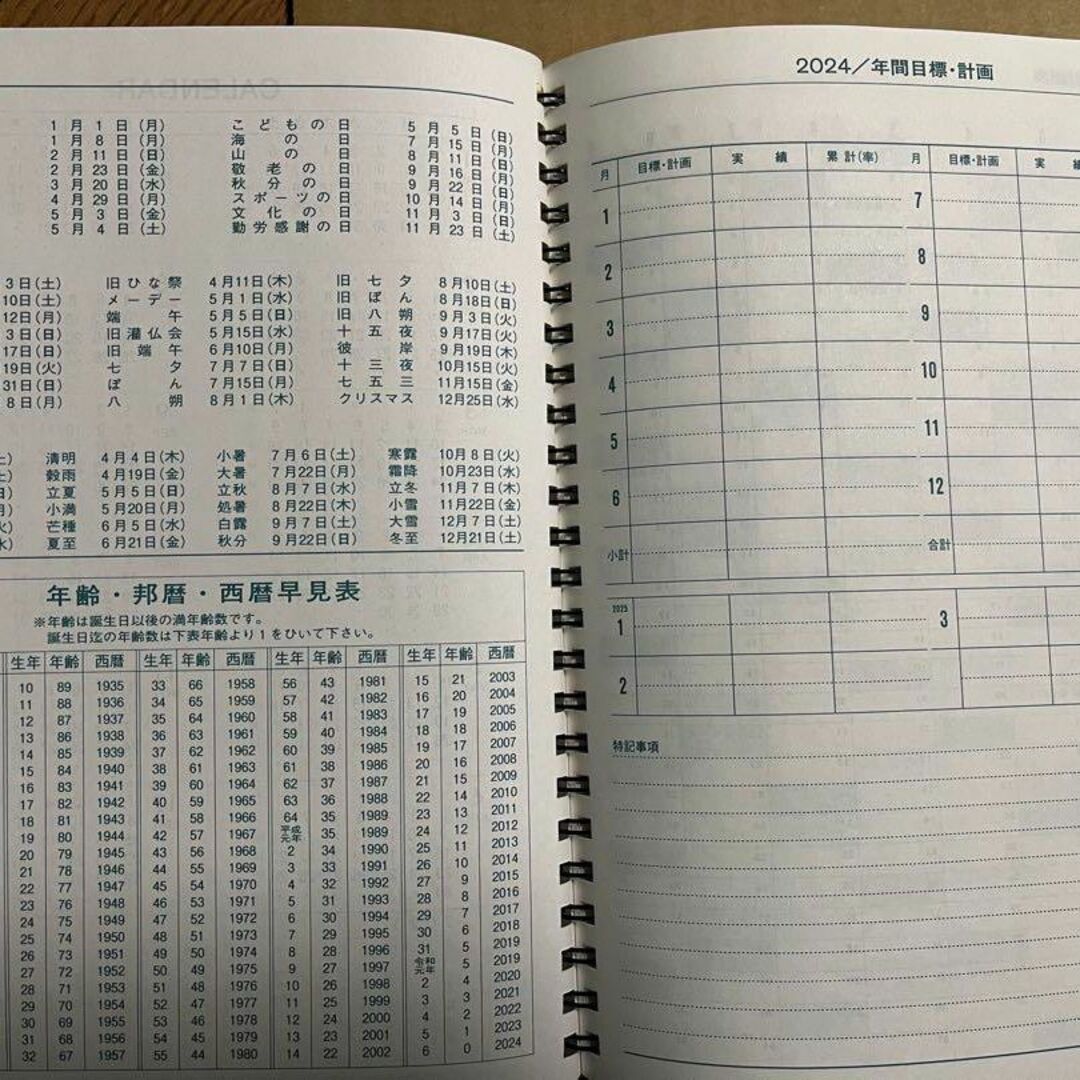 1月1日(月) こどもの日 5月5日(日)
1月8日(月) 海の日 7月15日(月)
2月11日(日) 山の日 8月11日(日)
2月23日(金) 敬老の日 9月16日(月)
3月20日(水) 秋分の日 9月22日(日)
4月29日(月) スポーツの日 10月14日(月)
5月3日(金) 文化の日 11月3日(日)
5月4日(土) 勤労感謝の日 11月23日(土)
3日(土) 旧ひな祭 4月11日(木) 旧七夕 8月10日(土)
10日(土) メーデー 5月1日(水) 旧ぼん 8月18日(日)
12日(月) 端午 5月5日(日) 旧八朔 9月3日(火)
3日(日) 旧灌仏会 5月15日(水) 十五夜 9月17日(火)
17日(日) 旧端午 6月10日(月) 彼岸 9月19日(木)
19日(火) 七夕 7月7日(日) 十三夜 10月15日(火)
31日(日) ぼん 7月15日(月) 七五三 11月15日(金)
8日(月) 八朔 8月1日(木) クリスマス 12月25日(水)
土) 清明 4月4日(木) 小暑 7月6日(土) 寒露 10月8日(火)
土) 穀雨 4月19日(金) 大暑 7月22日(月) 霜降 10月23日(水)
日) 立夏 5月5日(日) 立秋 8月7日(水) 立冬 11月7日(木)
月) 小満 5月20日(月) 処暑 8月22日(木) 小雪 11月22日(金)
火) 芒種 6月5日(水) 白露 9月7日(土) 大雪 12月7日(土)
水) 夏至 6月21日(金) 秋分 9月22日(日) 冬至 12月21日(土)
年齢・邦暦・西暦早見表
※年齢は誕生日以後の満年齢数です。
誕生日迄の年齢数は下表年齢より1をひいて下さい。
生年 年齢 西暦 生年 年齢 西暦 生年 年齢 西暦 生年 年齢 西暦
10 89 1935 33 66 1958 56 43 1981 15 21 2003
11 88 1936 34 65 1959 57 42 1982 16 20 2004
12 87 1937 35 64 1960 58 41 1983 17 19 2005
13 86 1938 36 63 1961 59 40 1984 18 18 2006
14 85 1939 37 62 1962 60 39 1985 19 17 2007
15 84 1940 38 61 1963 61 38 1986 20 16 2008
16 83 1941 39 60 1964 62 37 1987 21 15 2009
17 82 1942 40 59 1965 63 36 1988 22 14 2010
18 81 1943 41 58 1966 64 35 1989 23 13 2011
19 80 1944 42 57 1967 平成元年 35 1989 24 12 2012
20 79 1945 43 56 1968 2 34 1990 25 11 2013
21 78 1946 44 55 1969 3 33 1991 26 10 2014
22 77 1947 45 54 1970 4 32 1992 27 9 2015
23 76 1948 46 53 1971 5 31 1993 28 8 2016
24 75 1949 47 52 1972 6 30 1994 29 7 2017
25 74 1950 48 51 1973 7 29 1995 30 6 2018
26 73 1951 49 50 1974 8 28 1996 31 5 2019
27 72 1952 50 49 1975 9 27 1997 令和元年 5 2019
28 71 1953 51 48 1976 10 26 1998 2 4 2020
29 70 1954 52 47 1977 11 25 1999 3 3 2021
30 69 1955 53 46 1978 12 24 2000 4 2 2022
31 68 1956 54 45 1979 13 23 2001 5 1 2023
32 67 1957 55 44 1980 14 22 2002 6 0 2024
2024／年間目標・計画
月 目標・計画 実績 累計(率) 月 目標・計画 実
1 7
2 8
3 9
4 10
5 11
6 12
小計 合計
2025
1 3
2
特記事項